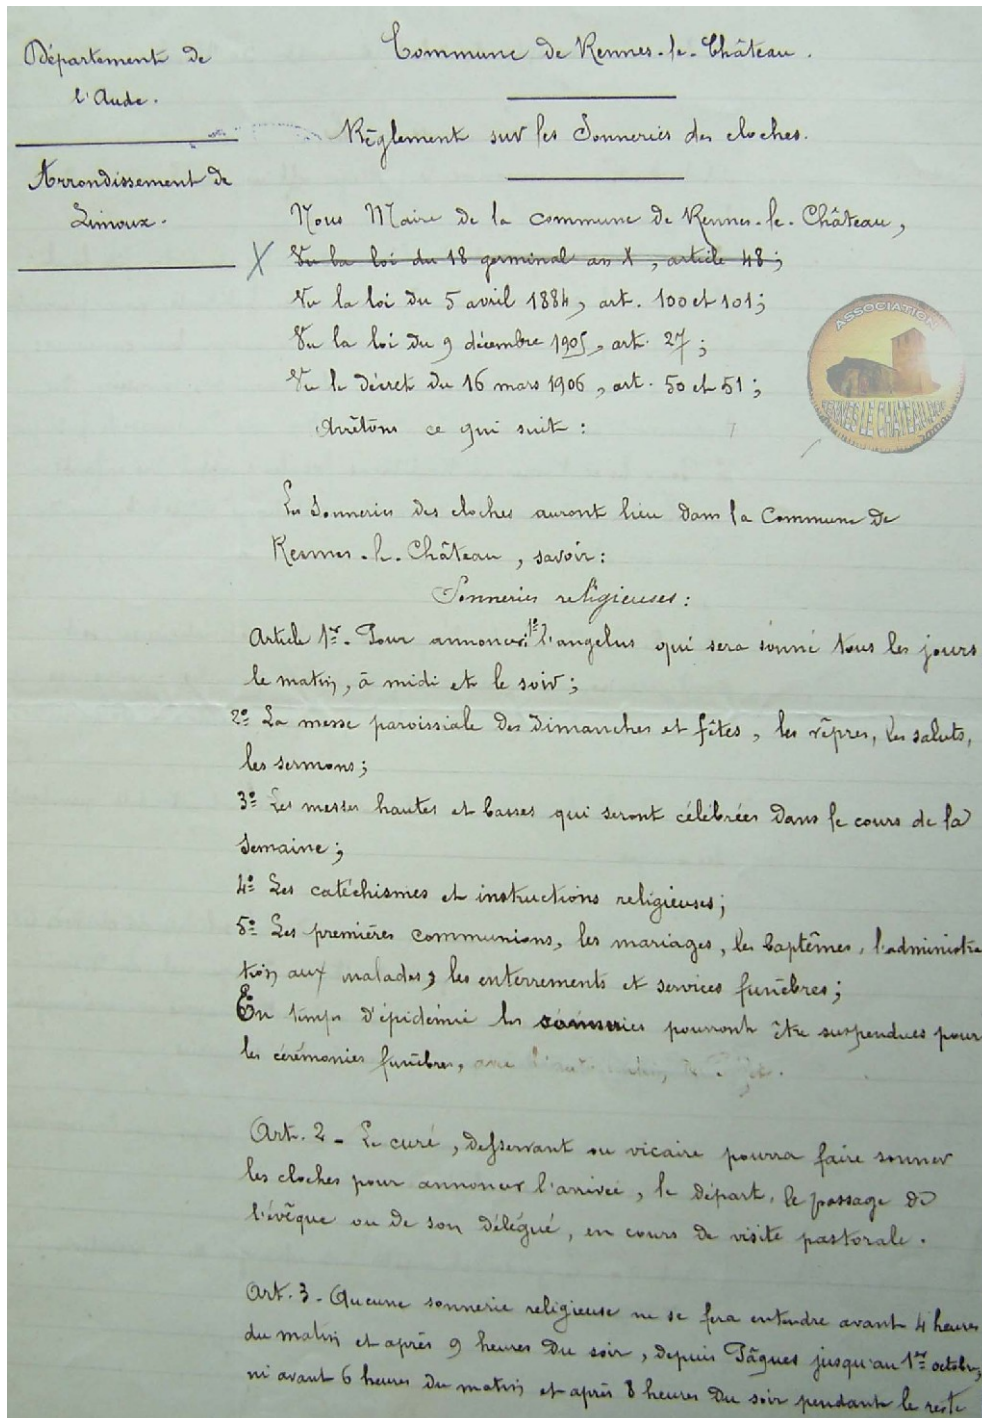 Département de
l'Aude.
Arrondissement de
Limoux.
Commune de Rennes-le-Château.
Règlement sur les Sonneries des cloches.
Nous Maire de la commune de Rennes-le-Château,
Vu la loi du 18 germinal an X, article 48;
Vu la loi du 5 avril 1884, art. 100 et 101;
Vu la loi du 9 décembre 1905, art. 27;
Vu le décret du 16 mars 1906, art. 50 et 51;
Arrêtons ce qui suit:
ASSOCIATION
RENNES LE CHATEAU
Les Sonneries des cloches auront lieu dans la Commune de
Rennes-le-Château, savoir:
Sonneries religieuses:
Article 1er. Pour annoncer: 1º l'angelus qui sera sonné tous les jours
le matin, à midi et le soir;
2º La messe paroissiale des Dimanches et fêtes, les vêpres, les saluts,
les sermons;
3º Les messes hautes et basses qui seront célébrées dans le cours de la
Semaine;
4º Les catéchismes et instructions religieuses;
5º Les premières communions, les mariages, les baptêmes, l'administra
tion aux malades, les enterrements et services funèbres;
En temps d'épidémie les sonneries pourront être suspendues pour
les cérémonies funèbres,
Art. 2 - Le curé, desservant ou vicaire pourra faire sonner
les cloches pour annoncer l'arrivée, le départ, le passage de
l'évêque ou de son délégué, en cours de visite pastorale.
Art. 3 - Aucune sonnerie religieuse ne se fera entendre avant 4 heures
du matin et après 9 heures du soir, depuis Pâques jusqu'au 1er octobre,
ni avant 6 heures du matin et après 8 heures du soir pendant le reste